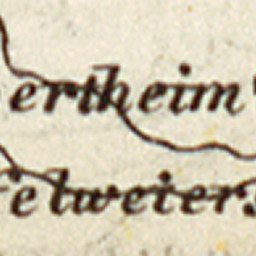 ertheim
felweiers